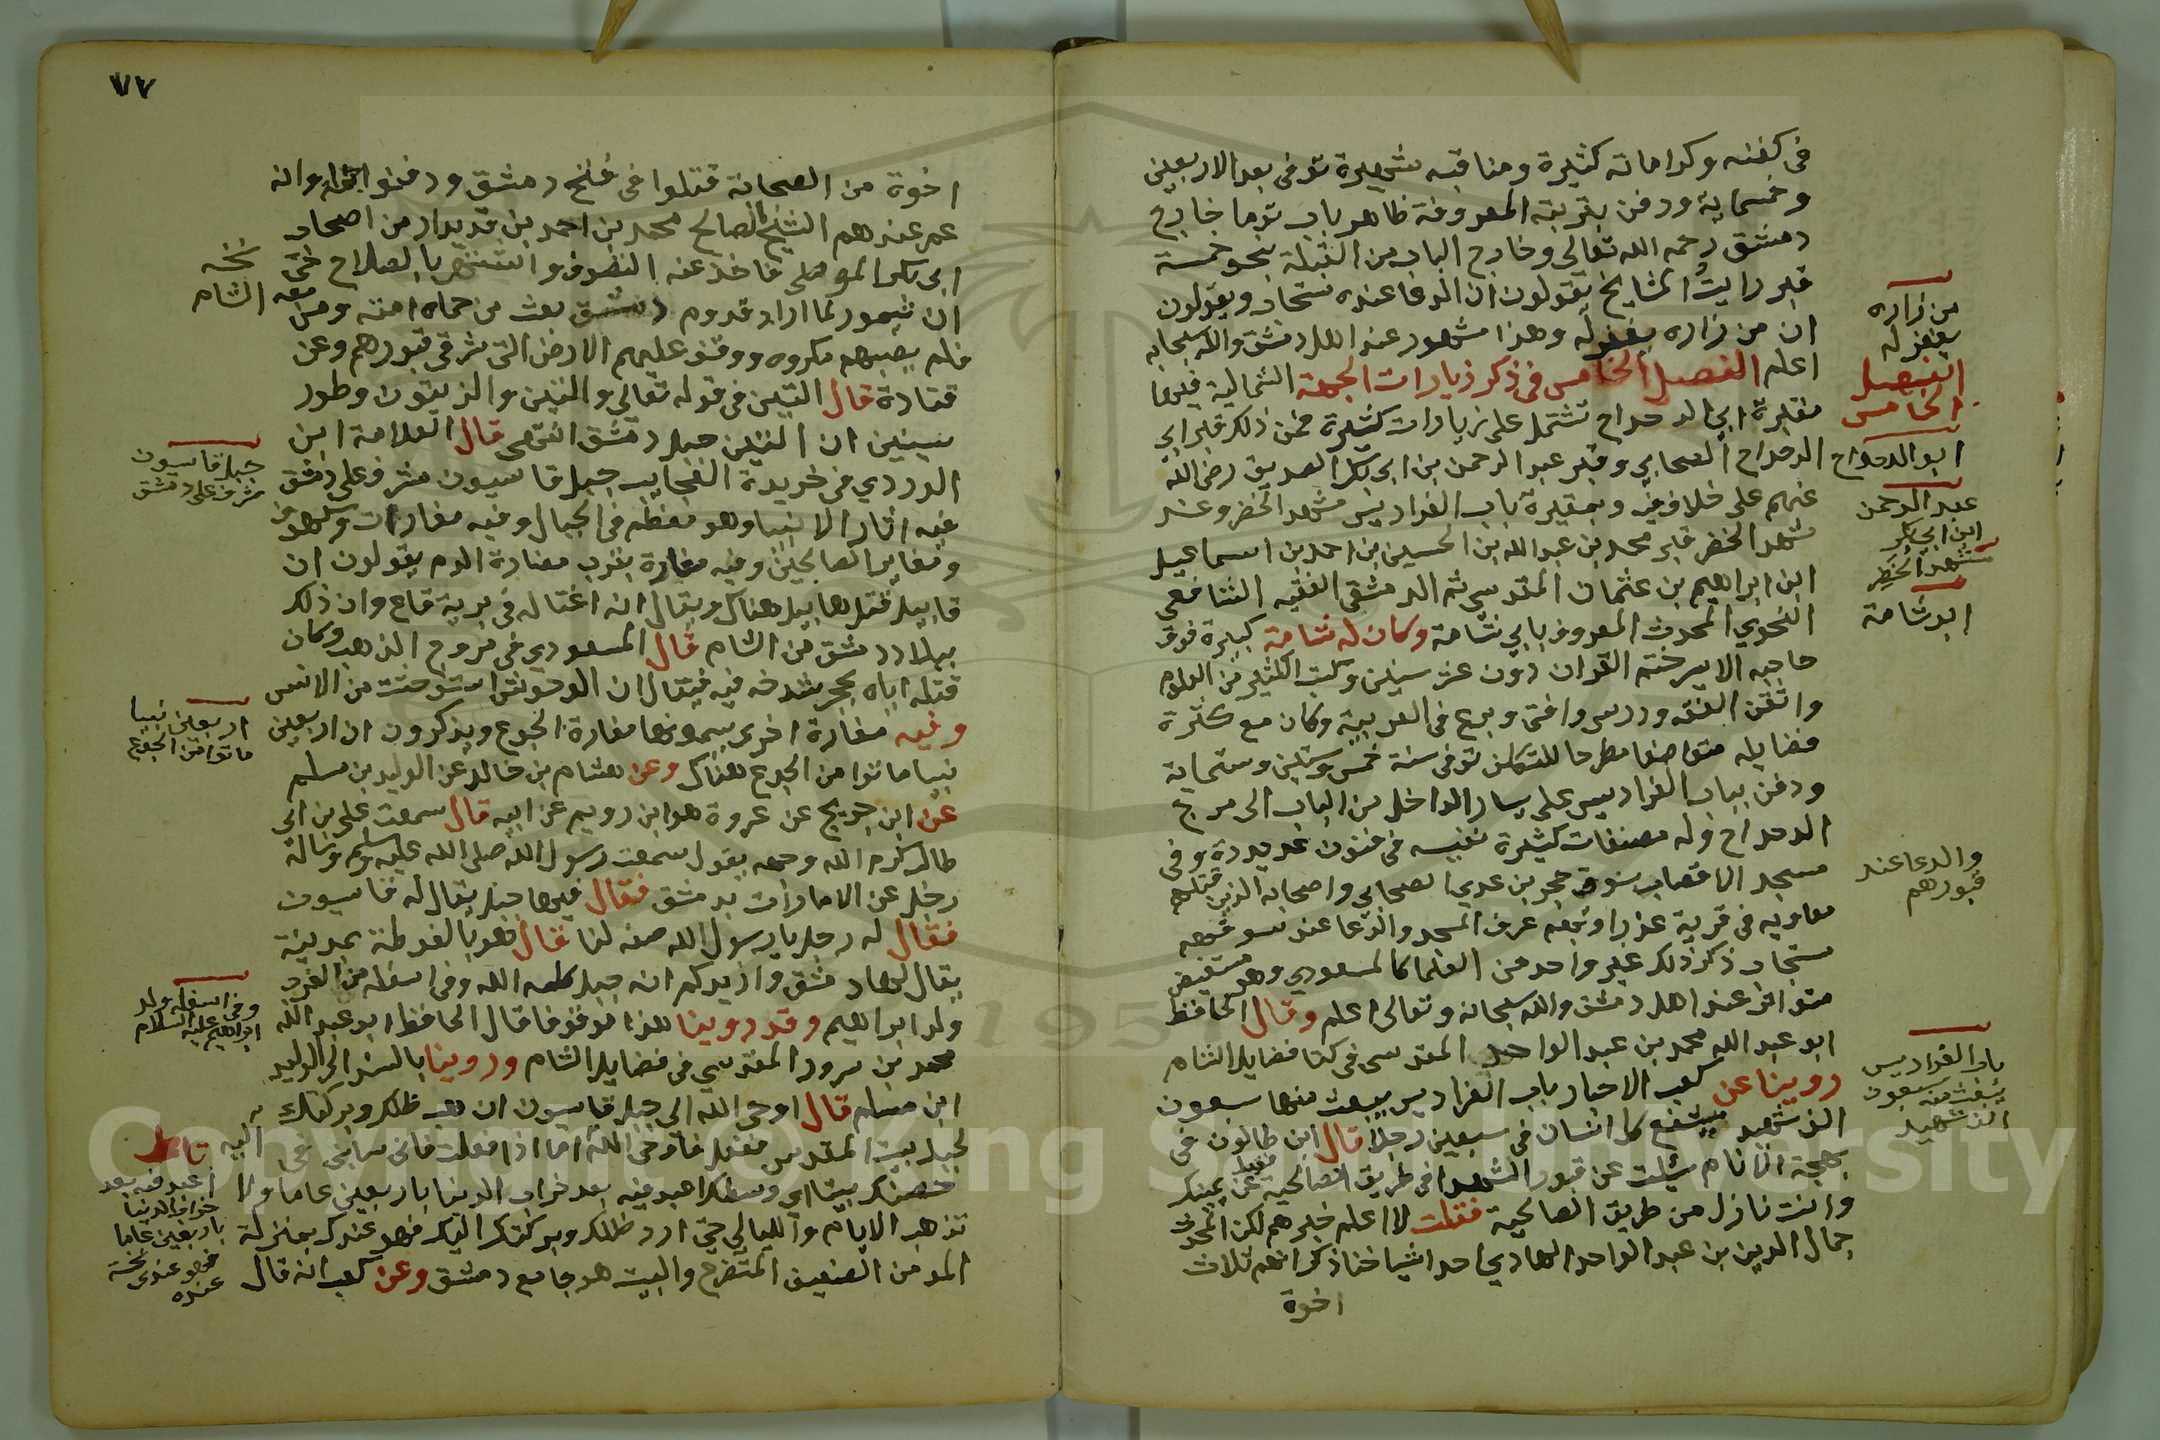 في كفنه وكراماته كثيرة ومناقبه شهيرة توفي بعد الاربعين
وخمسماية ودفن بتربته المعروفة ظاهر باب توما خارج
دمشق رحمه الله تعالى وخارج الباب من القبلة بنحو خمسة
قبر رايت المشايخ يقولون ان الدعا عنده مستجاب ويقولون
ان من زاره يغفر له وهذا مشهور عند اهل دمشق والله سبحانه
اعلم الفصل الخامس في ذكر زيارات الجهة الشمالية فيها
مقبرة ابي الدحداح تشتمل على زيارات كثيرة فمن ذلك قبر ابي
الدحداح الصحابي وقبر عبد الرحمن بن ابي بكر الصديق رضي الله
عنهم على خلاف فيه وبمقبرة باب الفراديس مشهد الخضر وعند
مشهد الخضر قبر محمد بن عبد الله بن الحسين بن احمد بن اسماعيل
ابن ابراهيم بن عثمان المقدسي ثم الدمشقي الفقيه الشافعي
النحوي المحدث المعروف بابي شامة وكان له شامة كبيرة فوق
حاجبه الايسر ختم القران دون عشر سنين وكتب الكثير من العلوم
واتقن الفقه ودرس وافتى وبرع في العربية وكان مع كثرة
فضايله متواضعا مطرحا للتكلف توفي سنة خمس وستين وستماية
ودفن بباب الفراديس على يسار الداخل من الباب الى مرج
الدحداح وله مصنفات كثيرة نفيسه في فنون عديدة وفي
مسجد الاقصاب سوق حجر بن عدي الصحابي واصحابه الذين قتلهم
معاويه في قرية عذرا وبهم عرف المسجد والدعا عند
مستجاب ذكر ذلك غير واحد من العلما كالمسعودي وهو مستفيض
متواتر عند اهل دمشق والله سبحانه وتعالى اعلم وقال الحافظ
ابو عبد الله محمد بن عبد الواحد المقدسي في كتا فضايل الشام
روينا عن كعب الاحبار باب الفراديس يبعث منها سبعون
الف شهيد يشفع كل انسان في سبعين رجلا قال ابن طالون في
بهجة الانام سئلت عن قبور الشهدا في طريق الصالحية عن يمينك
وانت نازل من طريق الصالحية فقلت لا اعلم خبرهم لكن المحدث
جمال الدين بن عبد الواحد الهادي احد اشياخنا ذكر انهم ثلاث
اخوة
من زاره
يغفر له
الفصل
الخامس
ابو الدحداح
عبد الرحمن
ابن ابي بكر
مشهد الخضر
ابو شامة
والدعا عند
قبورهم
باب الفراديس
يبعث منه سبعون
الف شهيد
٧٧
اخوة من الصحابة قتلوا في فتح دمشق ودفنوا هناك وانه
عمر عندهم الشيخ الصالح محمد بن احمد بن قديدار من اصحاب
ابي بكر الموصلي فاخذ عنه التصوف واشتهر بالصلاح حتى
ان تيمور لما اراد قدوم دمشق بعث من حماه امنه ومن معه
فلم يصبهم مكروه ووقف عليهم الارض التي شرقي قبورهم وعن
قتادة قال التين في قوله تعالى والتين والزيتون وطور
سينين ان التين جبل دمشق انتهى قال العلامة ابن
الوردي في خريدة العجايب جبل قاسيون مشرف على دمشق
فيه اثار الانبيا وهو معظم في الجبال وفيه مغارات
ومقابر الصالحين وفيه مغارة بقرب مغارة الدم يقولون ان
قابيل قتل هابيل هناك ويقال انه اغتاله في برية قاع وان ذلك
ببلاد دمشق من الشام قال المسعودي في مروج الذهب وكان
قتله اياه بحجر شدخه فيه فيقال ان الوحوش استوحشت من الانس
وفيه مغارة اخرى يسمونها مغارة الجوع ويذكرون ان اربعين
نبيا ماتوا من الجوع هناك وعن هشام بن خالد عن الوليد بن مسلم
عن ابن جريج عن عروة هو ابن رويم عن ابيه قال سمعت علي بن ابي
طالب كرم الله وجهه يقول سمعت رسول الله صلى الله عليه وسلم وساله
رجل عن الامارات بدمشق فقال فيها جبل يقال له قاسيون
فقال له رجل يا رسول الله صفه لنا قال هو بالغوطة بمدينة
يقال لها دمشق وازيدكم انه جبل كلمه الله وفي اسفله من الغرب
ولد ابراهيم وقد روينا هذا موقوفا قال الحافظ ابو عبد الله
محمد بن سرور المقدسي في فضايل الشام وروينا بالسند الى الوليد
ابن مسلم قال اوحى الله الى جبل قاسيون ان هب ظلك وبركتك
لجبل بيت المقدس ففعل فاوحى الله اما اذا فعلت فاني سابني في
حضنك بيتا اي وسطك اعبد فيه بعد خراب الدنيا باربعين عاما ولا
تذهب الايام والليالي حتى ارد ظلك وبركتك اليك فهو عندك بمنزلة
المومن الضعيف المتضرع والبيت هو جامع دمشق وعن كعب انه قال
نسخه
الشام
جبل قاسيون
شرف على دمشق
اربعين نبيا
ماتوا من الجوع
وفي اسفله ولد
ابراهيم عليه السلام
اليه
اعبد فيه بعد
خراب الدنيا
باربعين عاما
فهو عندي نسخة
عنده
Copyright © King Saud University
1957